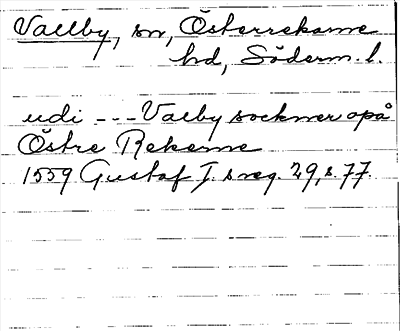 Vallby, sn, Österrekarne
hd, Söderm. l.
udi --- Valby sockner opå
Östre Rekarne
1559 Gustaf I:s reg. 29, s. 77.